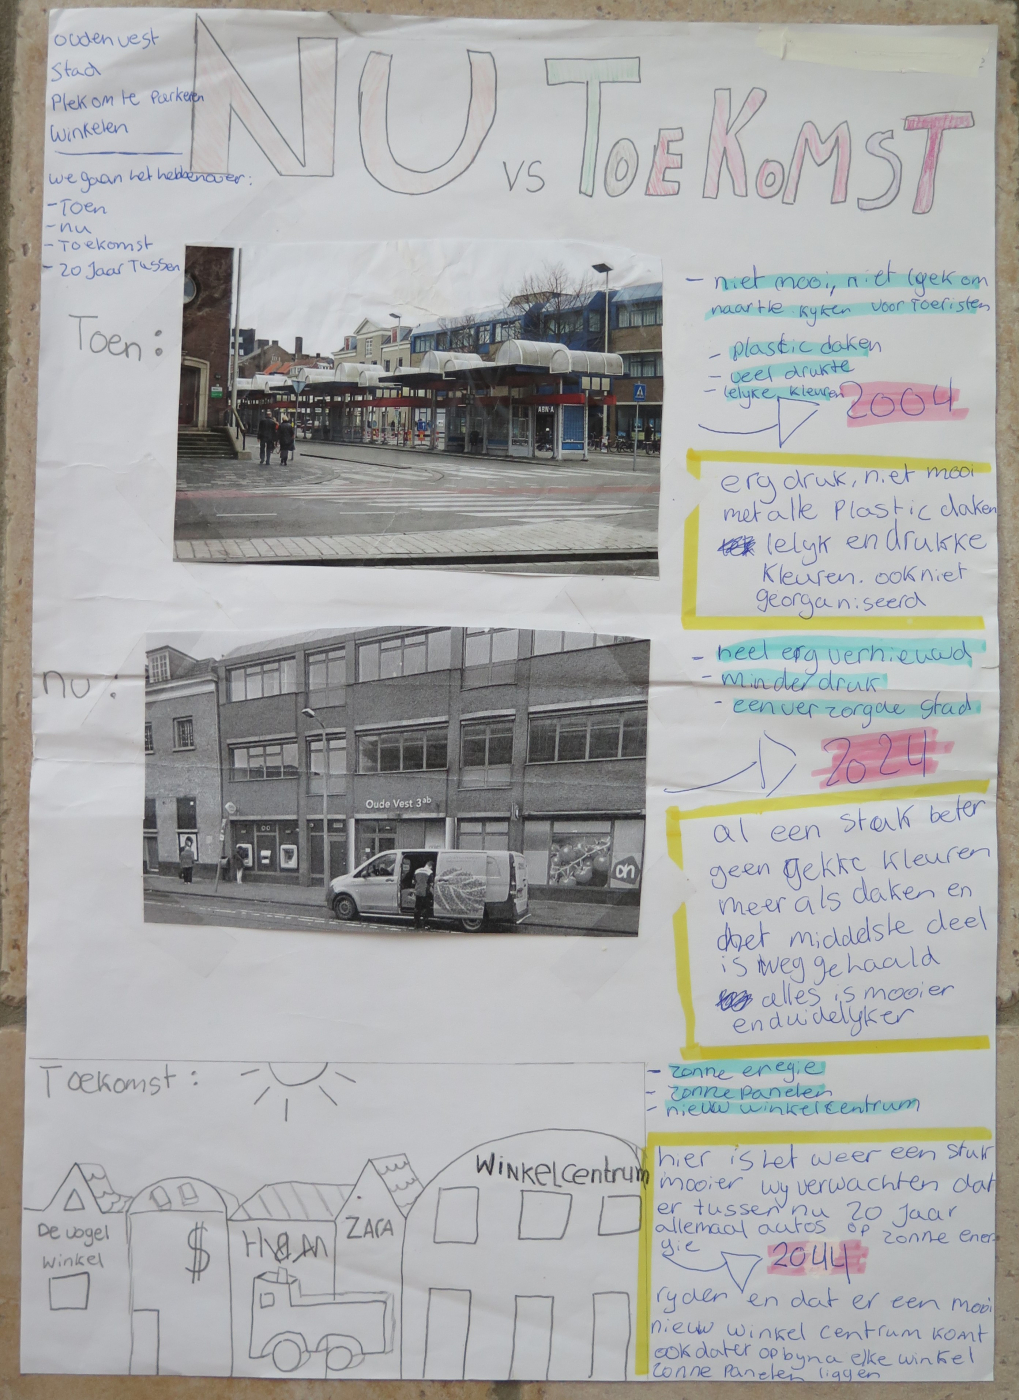 oudenvest
Stad
Plek om te Parkeren
winkelen
NU vs TOEKOMST
we gaan het hebben over:
- Toen
- nu
- Toekomst
- 20 Jaar Tussen
Toen:
ABN·A
- niet mooi, niet
naar te kyken voor Toeristen
- plastic daken
- veel drukte
- lelyke kleuren
2004
erg druk, niet mooi
met alle Plastic daken
lelyk en drukke
kleuren. ook niet
georganiseerd
nu:
Oude Vest 3ab
- heel erg vernieuwd
- minder druk
- een verzorgde stad
2024
al een stuk beter
geen gekke kleuren
meer als daken en
het middelste deel
is weg gehaald
alles is mooier
en duidelyker
Toekomst:
De vogel
winkel
$
H&M
ZARA
Winkelcentrum
- zonne eregie
- zonne panelen
- nieuw winkelcentrum
hier is het weer een stuk
mooier wy verwachten dat
er tussen nu 20 Jaar
allemaal autos op zonne ener
gie
2044
ryden en dat er een mooi
nieuw winkel centrum komt
ook dat er op byna elke winkel
zonne panelen liggen